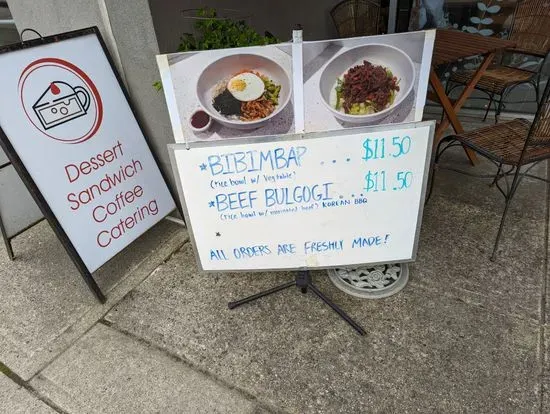 Dessert
Sandwich
Coffee
Catering
*BIBIMBAP ... $11.50
(rice bowl w/ vegetable)
*BEEF BULGOGI... $11.50
(rice bowl w/ marinated beef) KOREAN BBQ
*
ALL ORDERS ARE FRESHLY MADE!